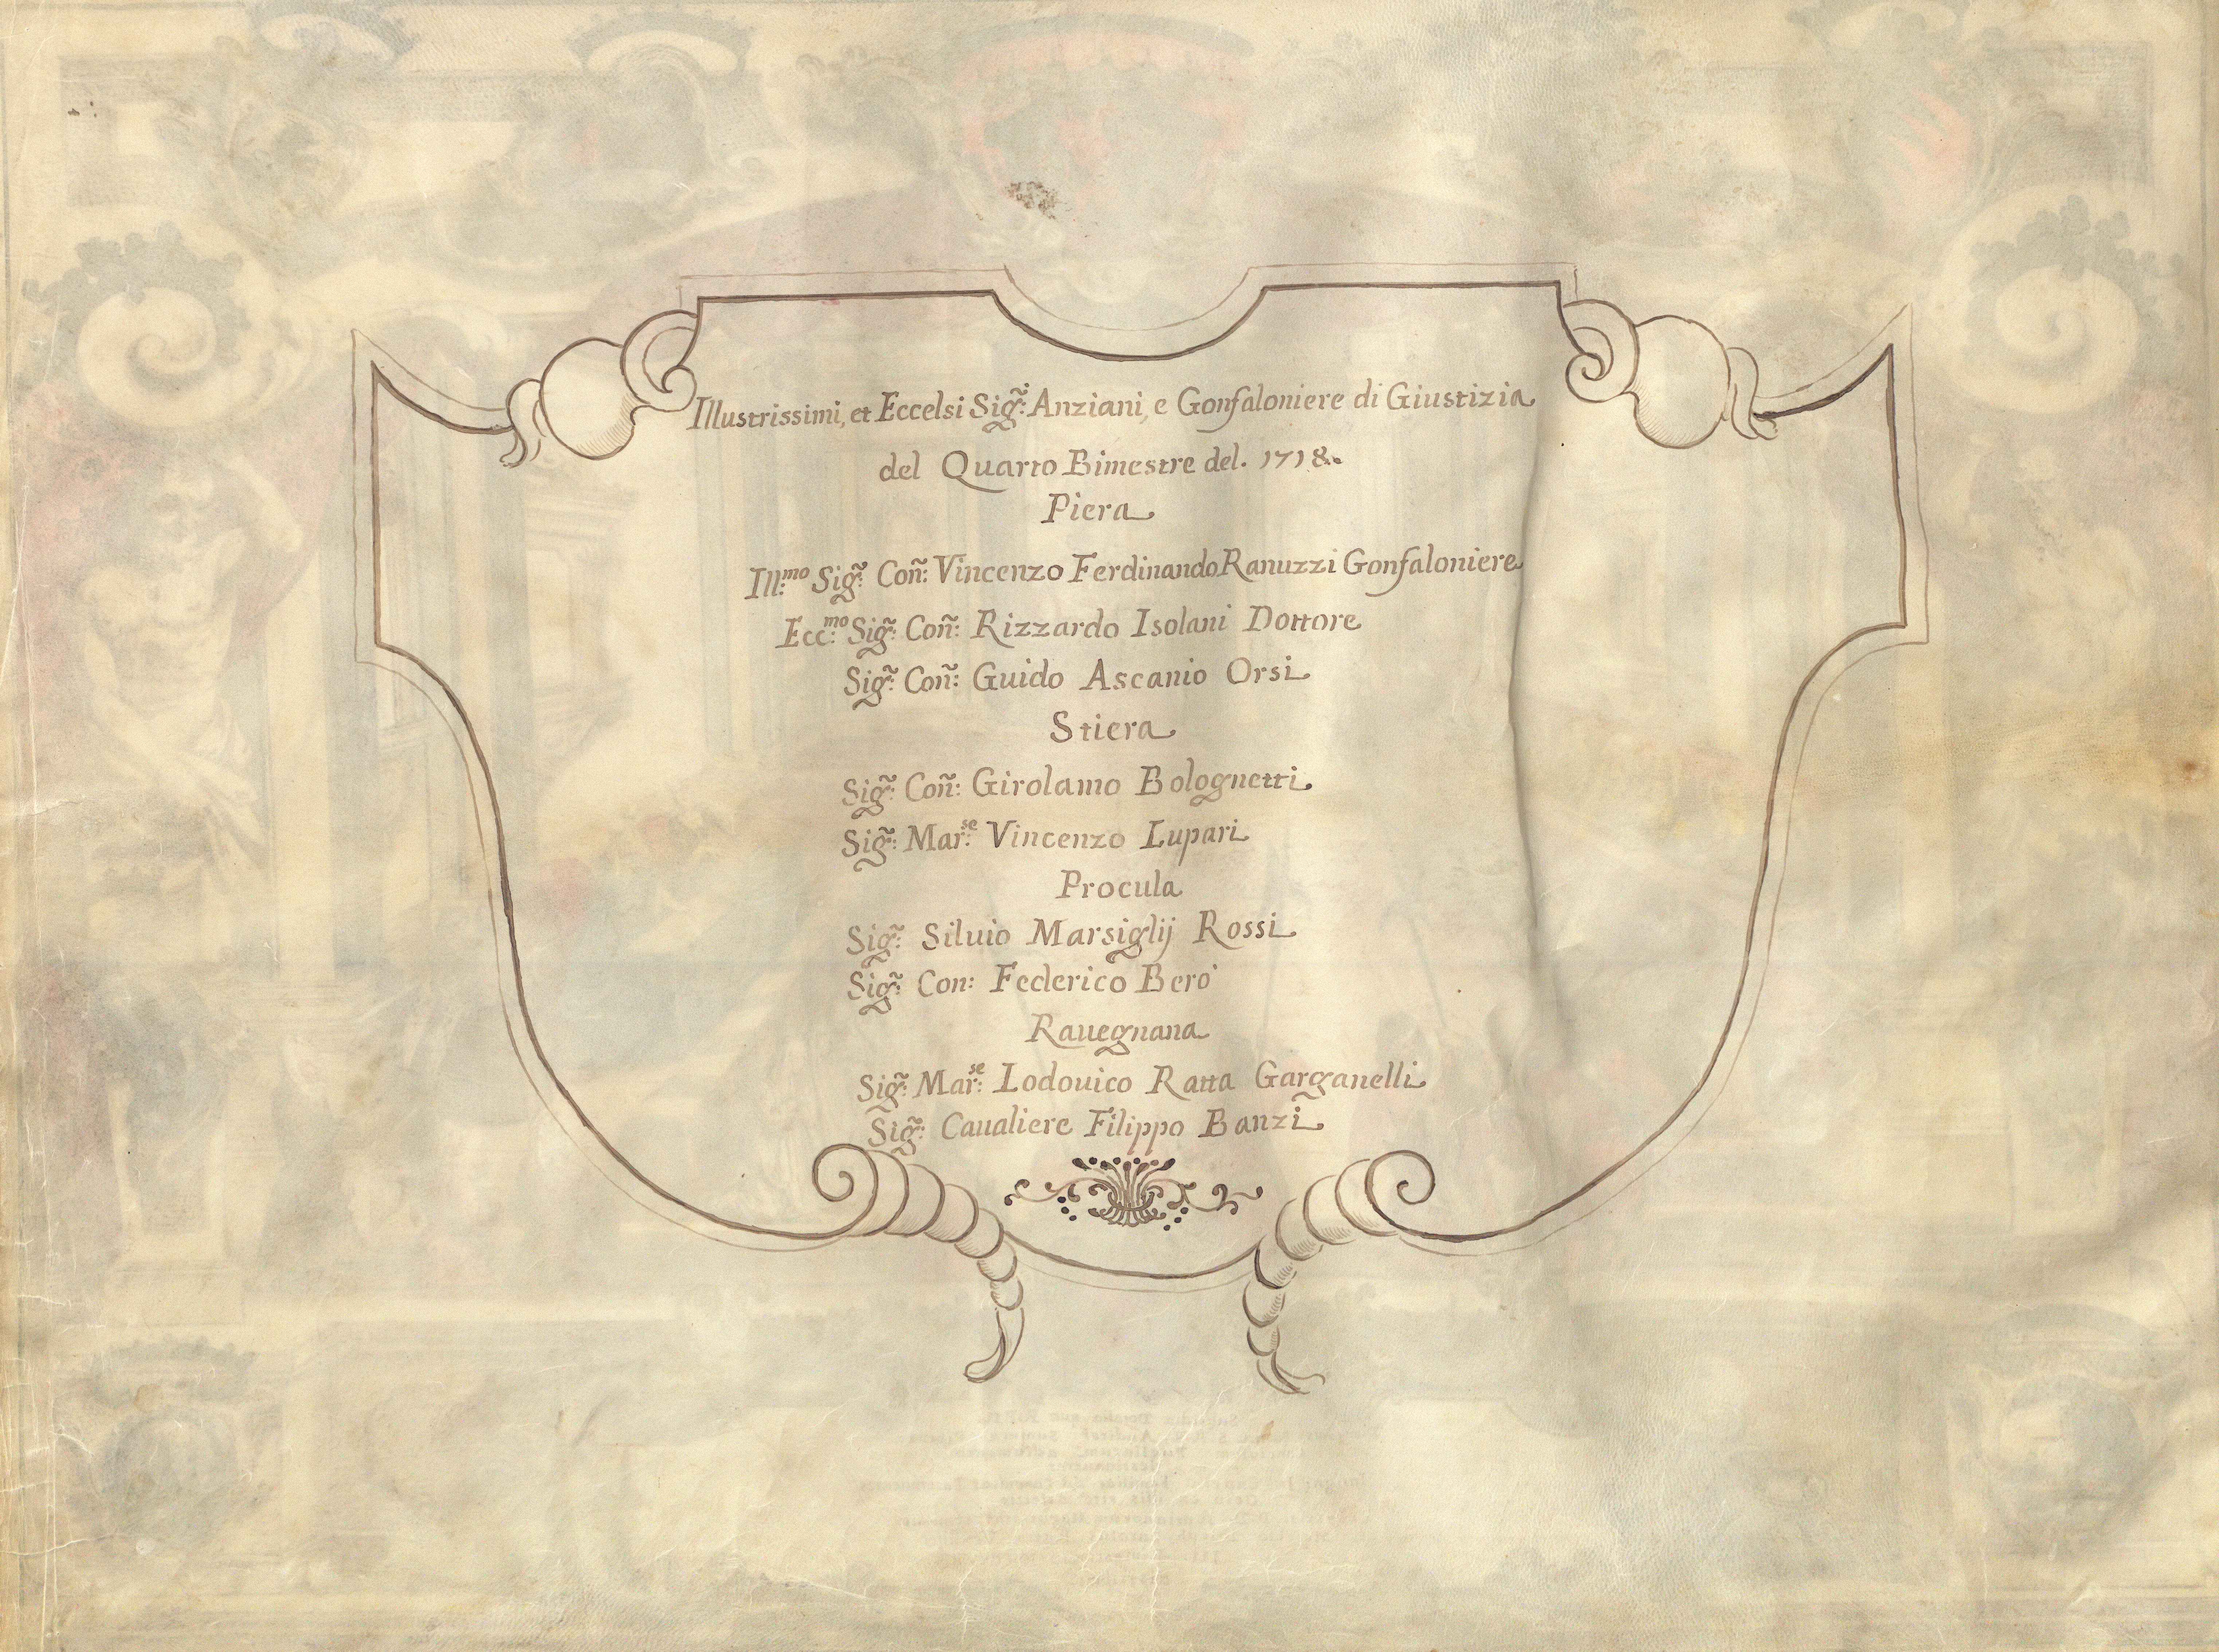 Illustrissimi, et Eccelsi Sig.ri Anziani, e Gonfaloniere di Giustizia
del Quarto Bimestre del. 1718.
Piera
Ill:mo Sig̃: Coñ: Vincenzo Ferdinando Ranuzzi Gonfaloniere
Ecc:mo Sig̃: Coñ: Rizzardo Isolani Dottore
Sig̃: Coñ: Guido Ascanio Orsi
Stiera
Sig̃: Coñ: Girolamo Bolognetti
Sig̃: Mar:se Vincenzo Lupari
Procula
Sig̃: Siluio Marsiglij Rossi
Sig̃: Con: Federico Berò
Rauegnana
Sig̃: Mar:se Lodouico Ratta Garganelli
Sig̃: Caualiere Filippo Banzi